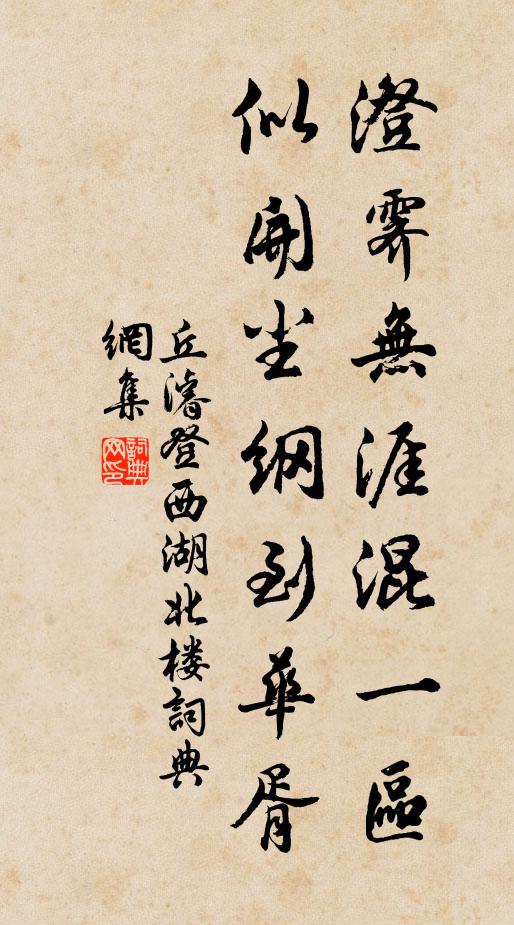 澄霽無涯混一區
似開尘綱到華胥
丘濬登西湖北楼詞典
網集
詞典网印